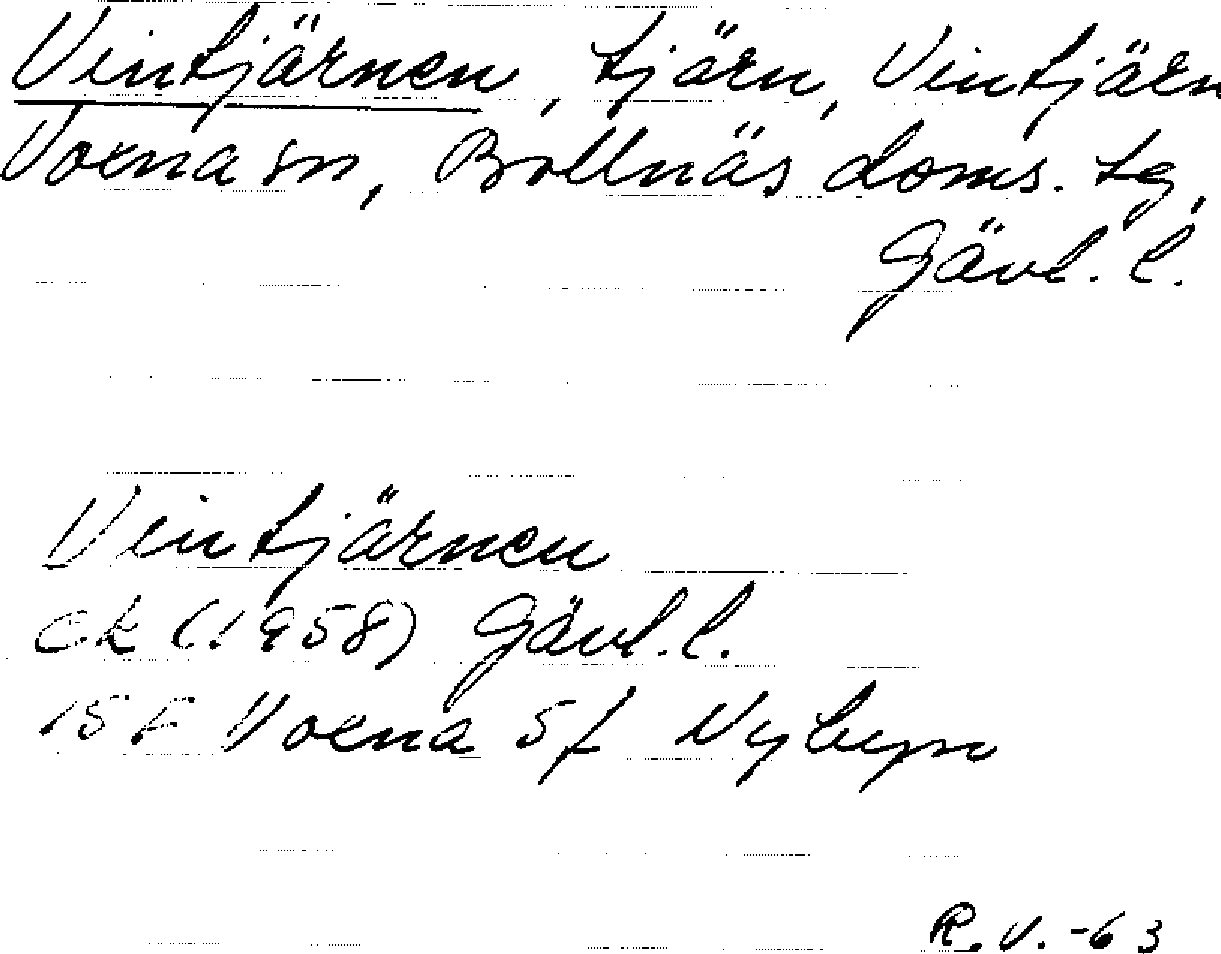 Vintjärnen, tjärn, Vintjärn
Voxna sn, Bollnäs doms. tg,
Gävl. l.
Vintjärnen
ek (1958) Gävl. l.
15 F Voxna 5f Nybyn
R.V. -63